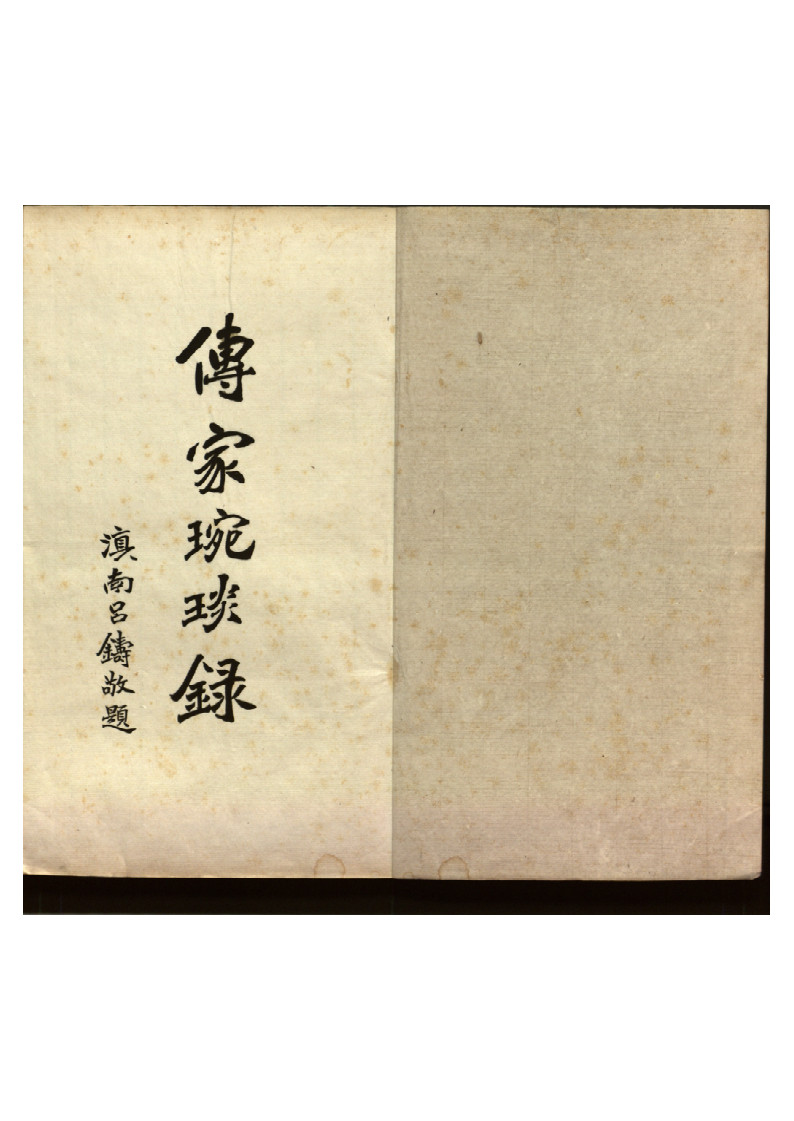 傳家琬琰録
滇南呂鑄敬題